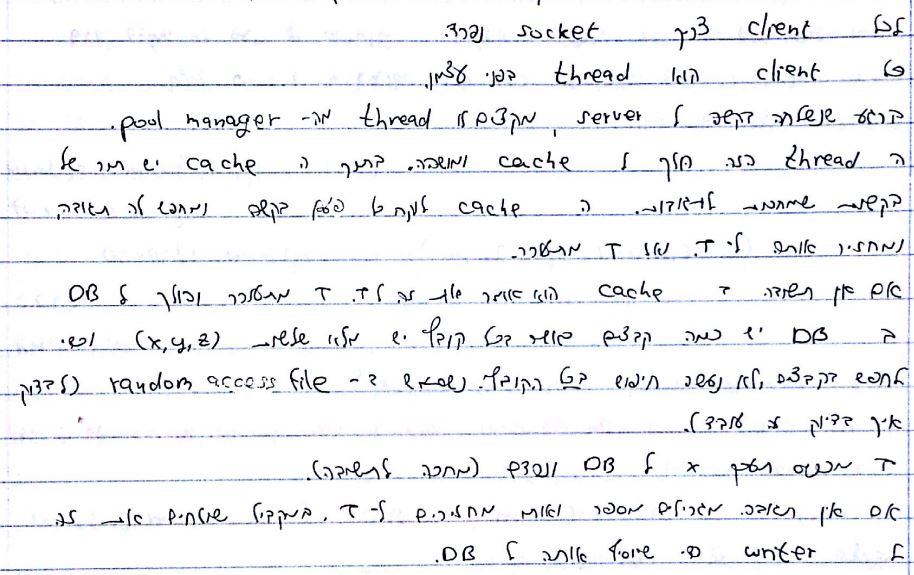 לכל client צריך socket נפרד.
כל client הוא thread בפני עצמו.
ברגע שנשלחה בקשה ל server, מקצים לו thread מה- pool manager.
ה thread הזה הולך ל cache ומחכה. בתוך ה cache יש תור של
בקשות שמחכות לתשובות. ה cache לוקח כל פעם בקשה ומחפש לה תשובה
ומחזיר אותה ל-T. ואז T מתעורר.
אם אין תשובה ב cache הוא אומר את זה ל-T. T מתעורר והולך ל DB
ב DB יש כמה קבצים כאשר בכל קובץ יש מלא שלשות (x,y,z) ואי
לחפש בקבצים, לא נעשה חיפוש בכל הקובץ. נשתמש ב- random access file (לבדוק
איך בדיוק זה עובד).
T מכניס x ל DB ונרדם (מחכה לתשובה).
אם אין תשובה מגרילים מספר ואותו מחזירים ל-T. במקביל שולחים את זה
ל writer כדי שיוסיף אותה ל DB.